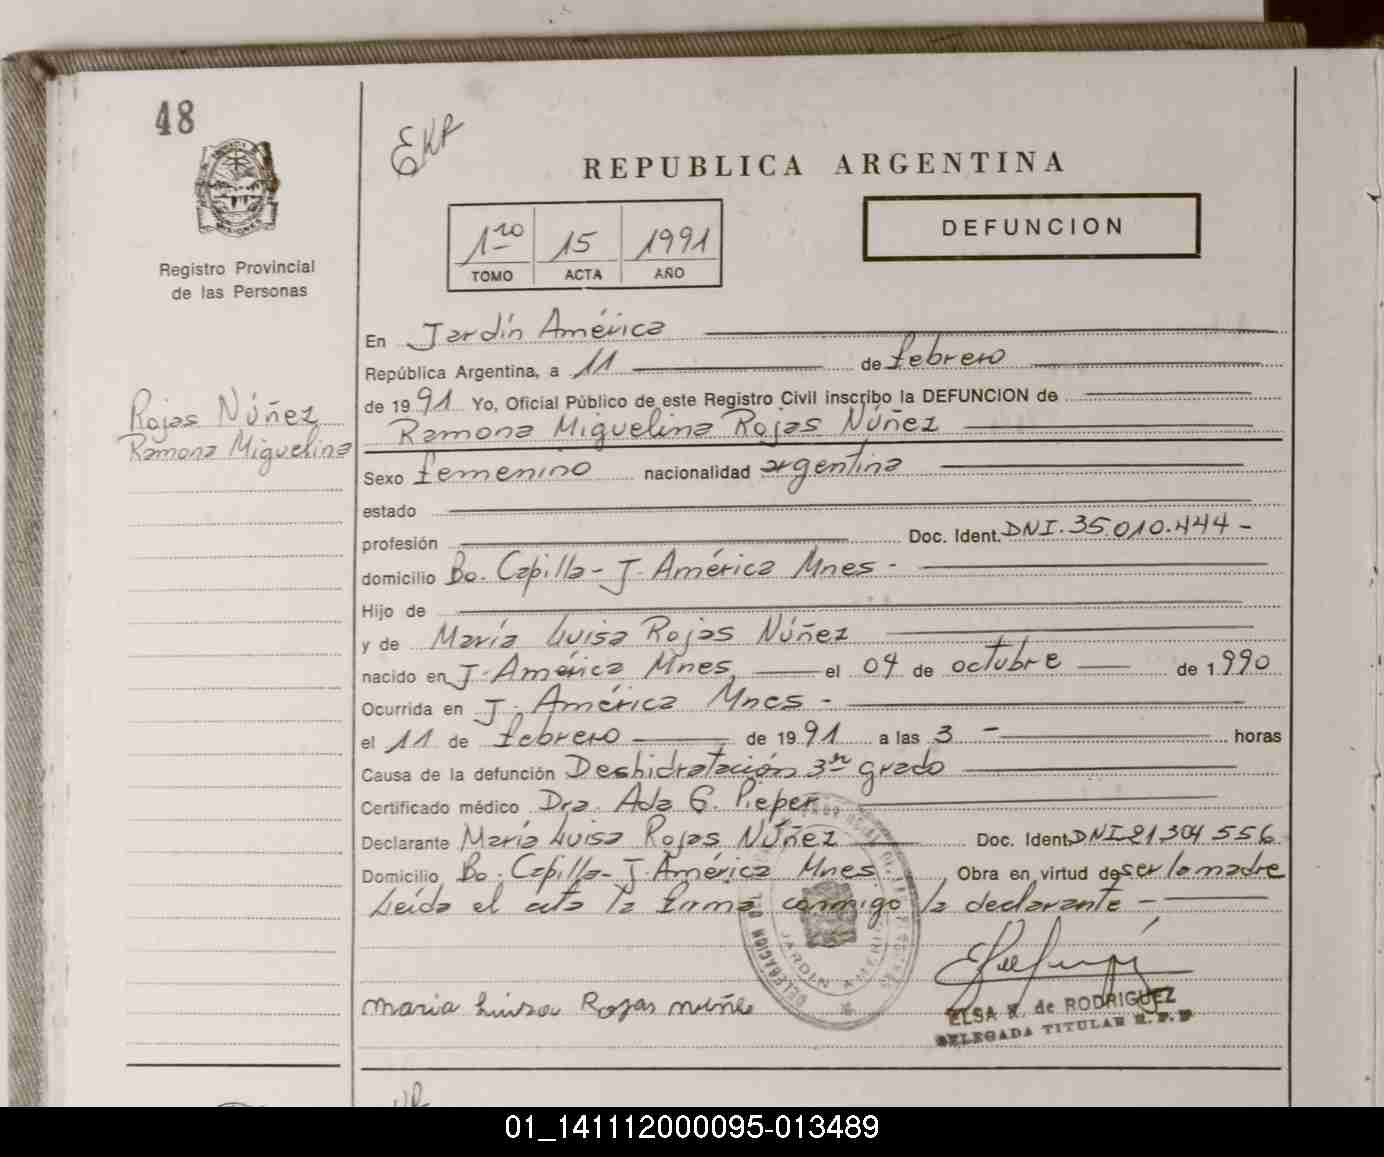 48
EKA
REPUBLICA ARGENTINA
1ro 15 1991
TOMO ACTA AÑO
DEFUNCION
Registro Provincial
de las Personas
Rojas Núñez
Ramona Miguelina
En Jardín América
República Argentina, a 11 de febrero
de 1991 Yo, Oficial Público de este Registro Civil inscribo la DEFUNCION de
Ramona Miguelina Rojas Núñez
Sexo femenino nacionalidad argentina
estado
profesión Doc. Ident. DNI. 35.010.444 -
domicilio Bo. Capilla - J. América Mnes -
Hijo de
y de María Luisa Rojas Núñez
nacido en J. América Mnes, el 04 de octubre de 1990
Ocurrida en J. América Mnes -
el 11 de febrero de 1991 a las 3 - horas
Causa de la defunción Deshidratación 3er grado
Certificado médico Dra. Ada G. Pieper
Declarante María Luisa Rojas Núñez Doc. Ident. DNI 21.304.556
Domicilio Bo. Capilla - J. América Mnes. Obra en virtud de ser la madre
Leída el acta la firma conmigo la declarante -
DELEGACION JARDIN AMERICA
maria Luisa Rojas nuñe
ELSA K. de RODRIGUEZ
DELEGADA TITULAR R. P. P
01_141112000095-013489